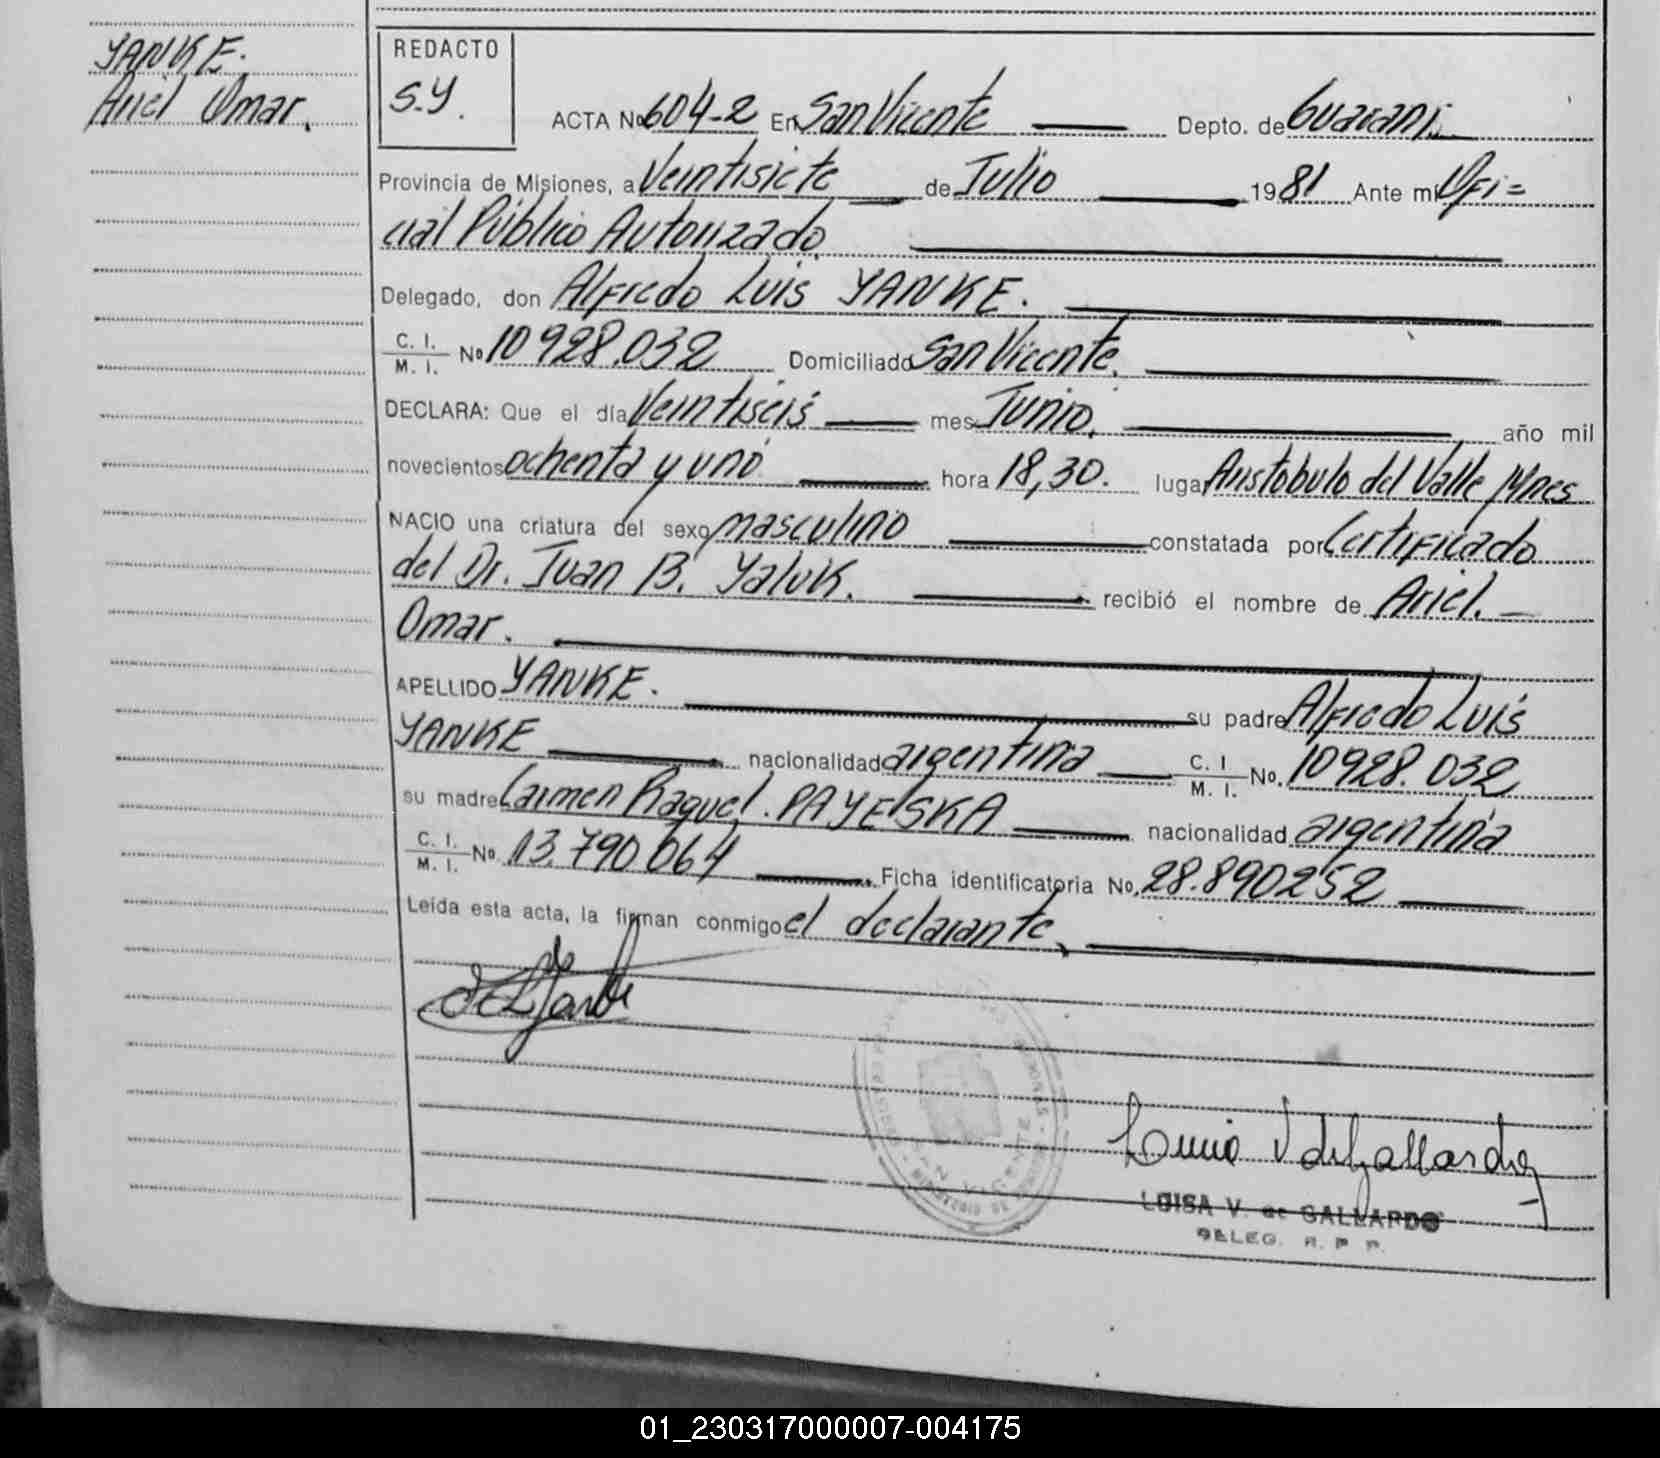 YANKE.
Ariel Omar.
REDACTO
S.Y.
ACTA No 604-2 En San Vicente Depto. de Guaraní.
Provincia de Misiones, a Veintisiete de Julio 1981 Ante mí Ofi=
cial Público Autorizado.
Delegado, don Alfredo Luis YANKE.
C. I. / M. I. No 10928.032 Domiciliado San Vicente.
DECLARA: Que el día Veintiseis mes Junio. año mil
novecientos ochenta y uno hora 18,30. lugar Aristobulo del Valle Mnes
NACIO una criatura del sexo masculino constatada por Certificado
del Dr. Juan B. Yaluk. recibió el nombre de Ariel.
Omar.
APELLIDO YANKE. su padre Alfredo Luis
YANKE nacionalidad argentina C. I. / M. I. No. 10928.032
su madre Carmen Raquel. PAYESKA nacionalidad argentina
C. I. / M. I. No. 13.790.064 Ficha identificatoria No. 28.890252
Leída esta acta, la firman conmigo el declarante.
SAN VICENTE
LUISA V. de GALLARDO
DELEG. R. P. P.
01_230317000007-004175